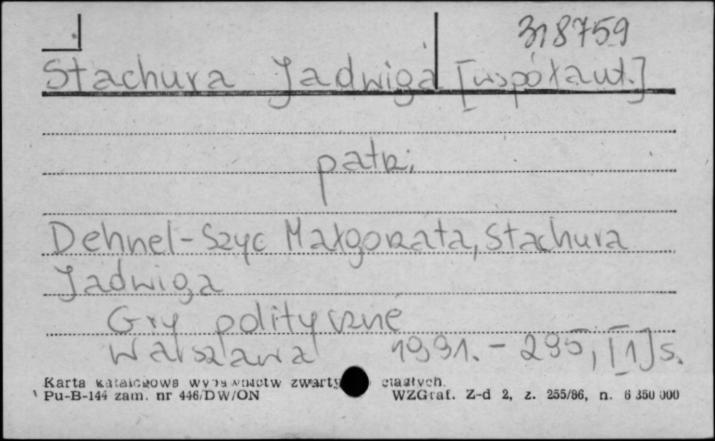 318759
Stachura Jadwiga [współaut.]
patrz:
Dehnel-Szyc Małgorzata, Stachura
Jadwiga
Gry polityczne
Warszawa 1991. - 295, [1] s.
Karta katalogowa wydawnictw zwartych ciągłych.
Pu-B-144 zam. nr 446/DW/ON WZGraf. Z-d 2, z. 255/86, n. 6 350 000